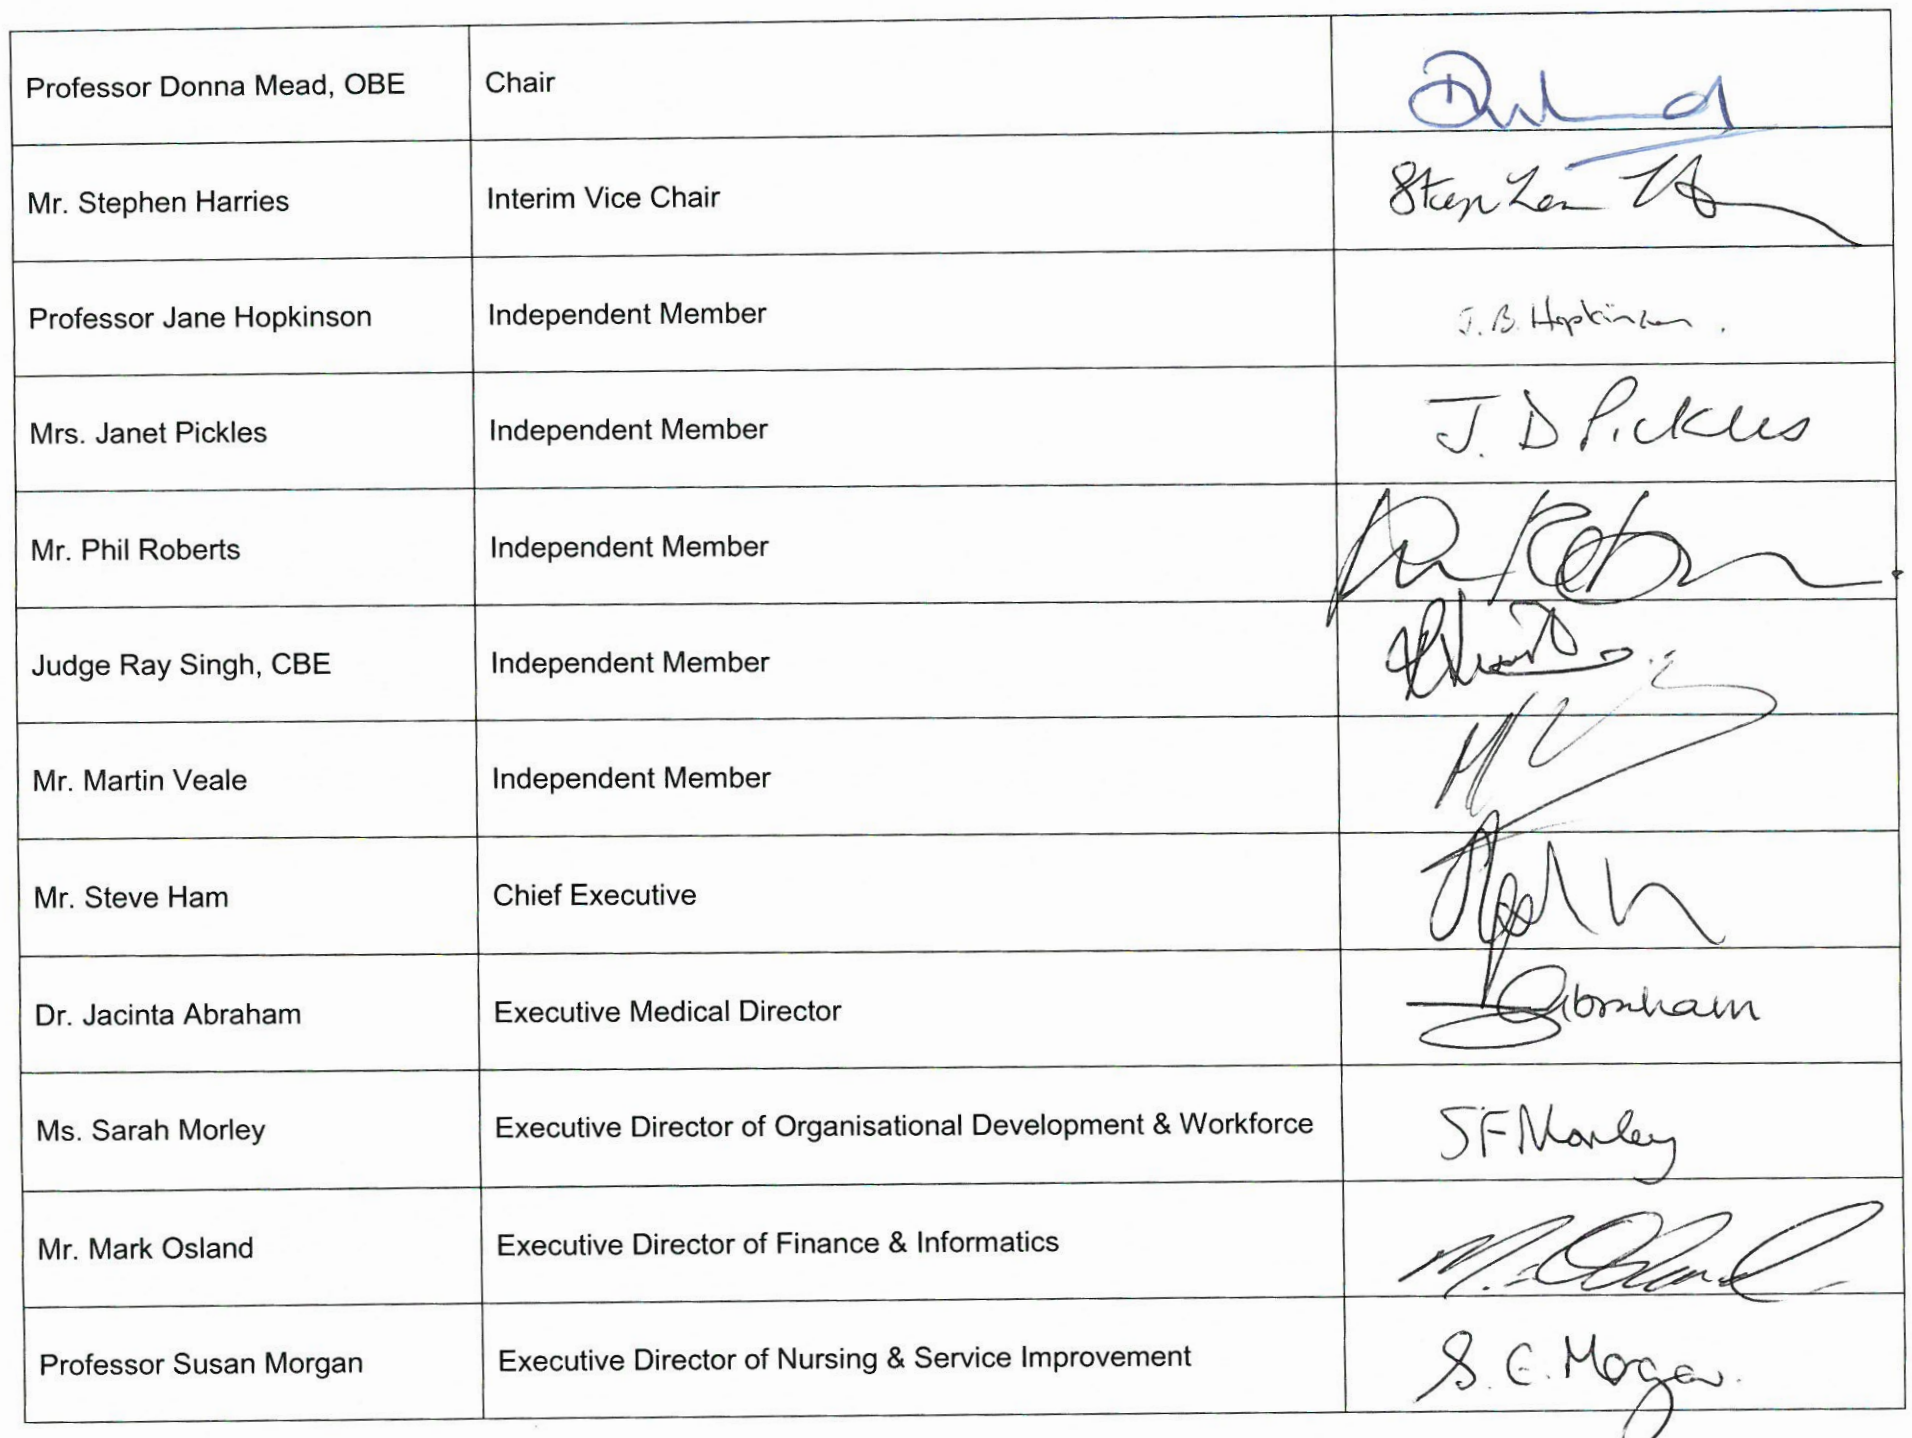 Professor Donna Mead, OBE Chair
Mr. Stephen Harries Interim Vice Chair Stephen
Professor Jane Hopkinson Independent Member J. B. Hopkinson.
Mrs. Janet Pickles Independent Member J. D Pickles
Mr. Phil Roberts Independent Member
Judge Ray Singh, CBE Independent Member
Mr. Martin Veale Independent Member
Mr. Steve Ham Chief Executive
Dr. Jacinta Abraham Executive Medical Director Abraham
Ms. Sarah Morley Executive Director of Organisational Development & Workforce SF Morley
Mr. Mark Osland Executive Director of Finance & Informatics
Professor Susan Morgan Executive Director of Nursing & Service Improvement S. E. Morgan.